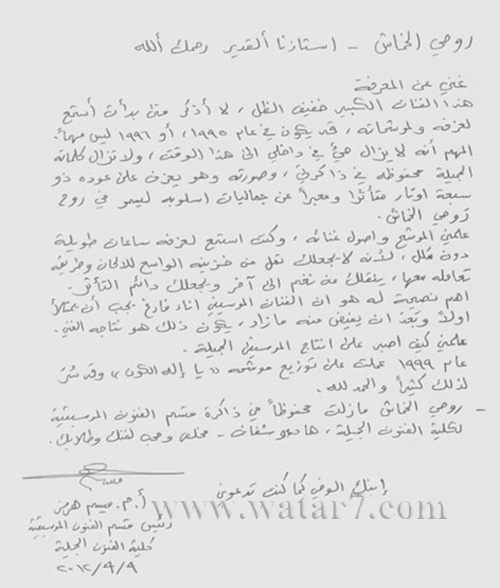 روحي الخماش - استاذنا القدير رحمك الله
غني عن المعرفة
هذا الفنان الكبير خفيف الظل، لا أذكر متى بدأت أستمع
لعزفه وموشحاته، قد يكون في عام ١٩٩٥، أو ١٩٩٦ ليس مهماً
المهم أنه لا يزال حيّ في داخلي الى هذا الوقت، ولا تزال كلماته
الجميلة محفوظه في ذاكرتي، وصورته وهو يعزف على عوده ذو
سبعة اوتار متأثراً ومعبراً عن جماليات اسلوبه ليسمو في روح
روحي الخماش.
علمني الموشح واصول غنائه، وكنت استمع لعزفه ساعات طويلة
دون ملل، لأنه لا يجعلك تمل من خزينه الواسع للالحان وطريقه
تعامله معها، ينقلك من نغم الى آخر ويجعلك دائم التألق.
اهم نصيحة له هو ان الفنان الموسيقي اناء فارغ يجب أن يمتلأ
اولاً وبعد ان يفيض منه مازاد، يكون ذلك هو نتاجه الفني.
علمني كيف اصبر على انتاج الموسيقى الجميلة.
عام ١٩٩٩ عملت على توزيع موشحه «يا إله الكون» وقد سُرّ
لذلك كثيراً والحمد لله.
- روحي الخماش مازلت محفوظاً في ذاكرة قسم الفنون الموسيقية
لكلية الفنون الجميلة، ها - مخلص ومحب لفنك وطلابك.
إبنك الوفي كما كنت تدعوني
أ.م. ميسم هرمز
رئيس قسم الفنون الموسيقية
كلية الفنون الجميلة
٢٠١٢/٩/٩
www.watar7.com